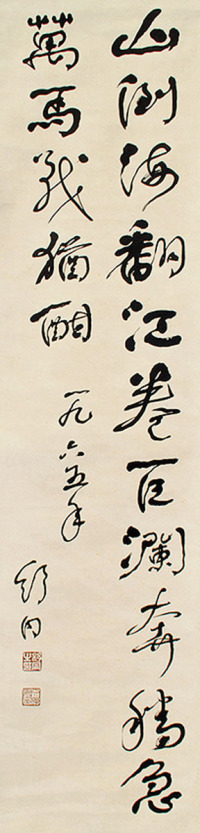 山倒海翻江卷巨瀾奔騰急
萬馬戰猶酣
一九六五年
舒同